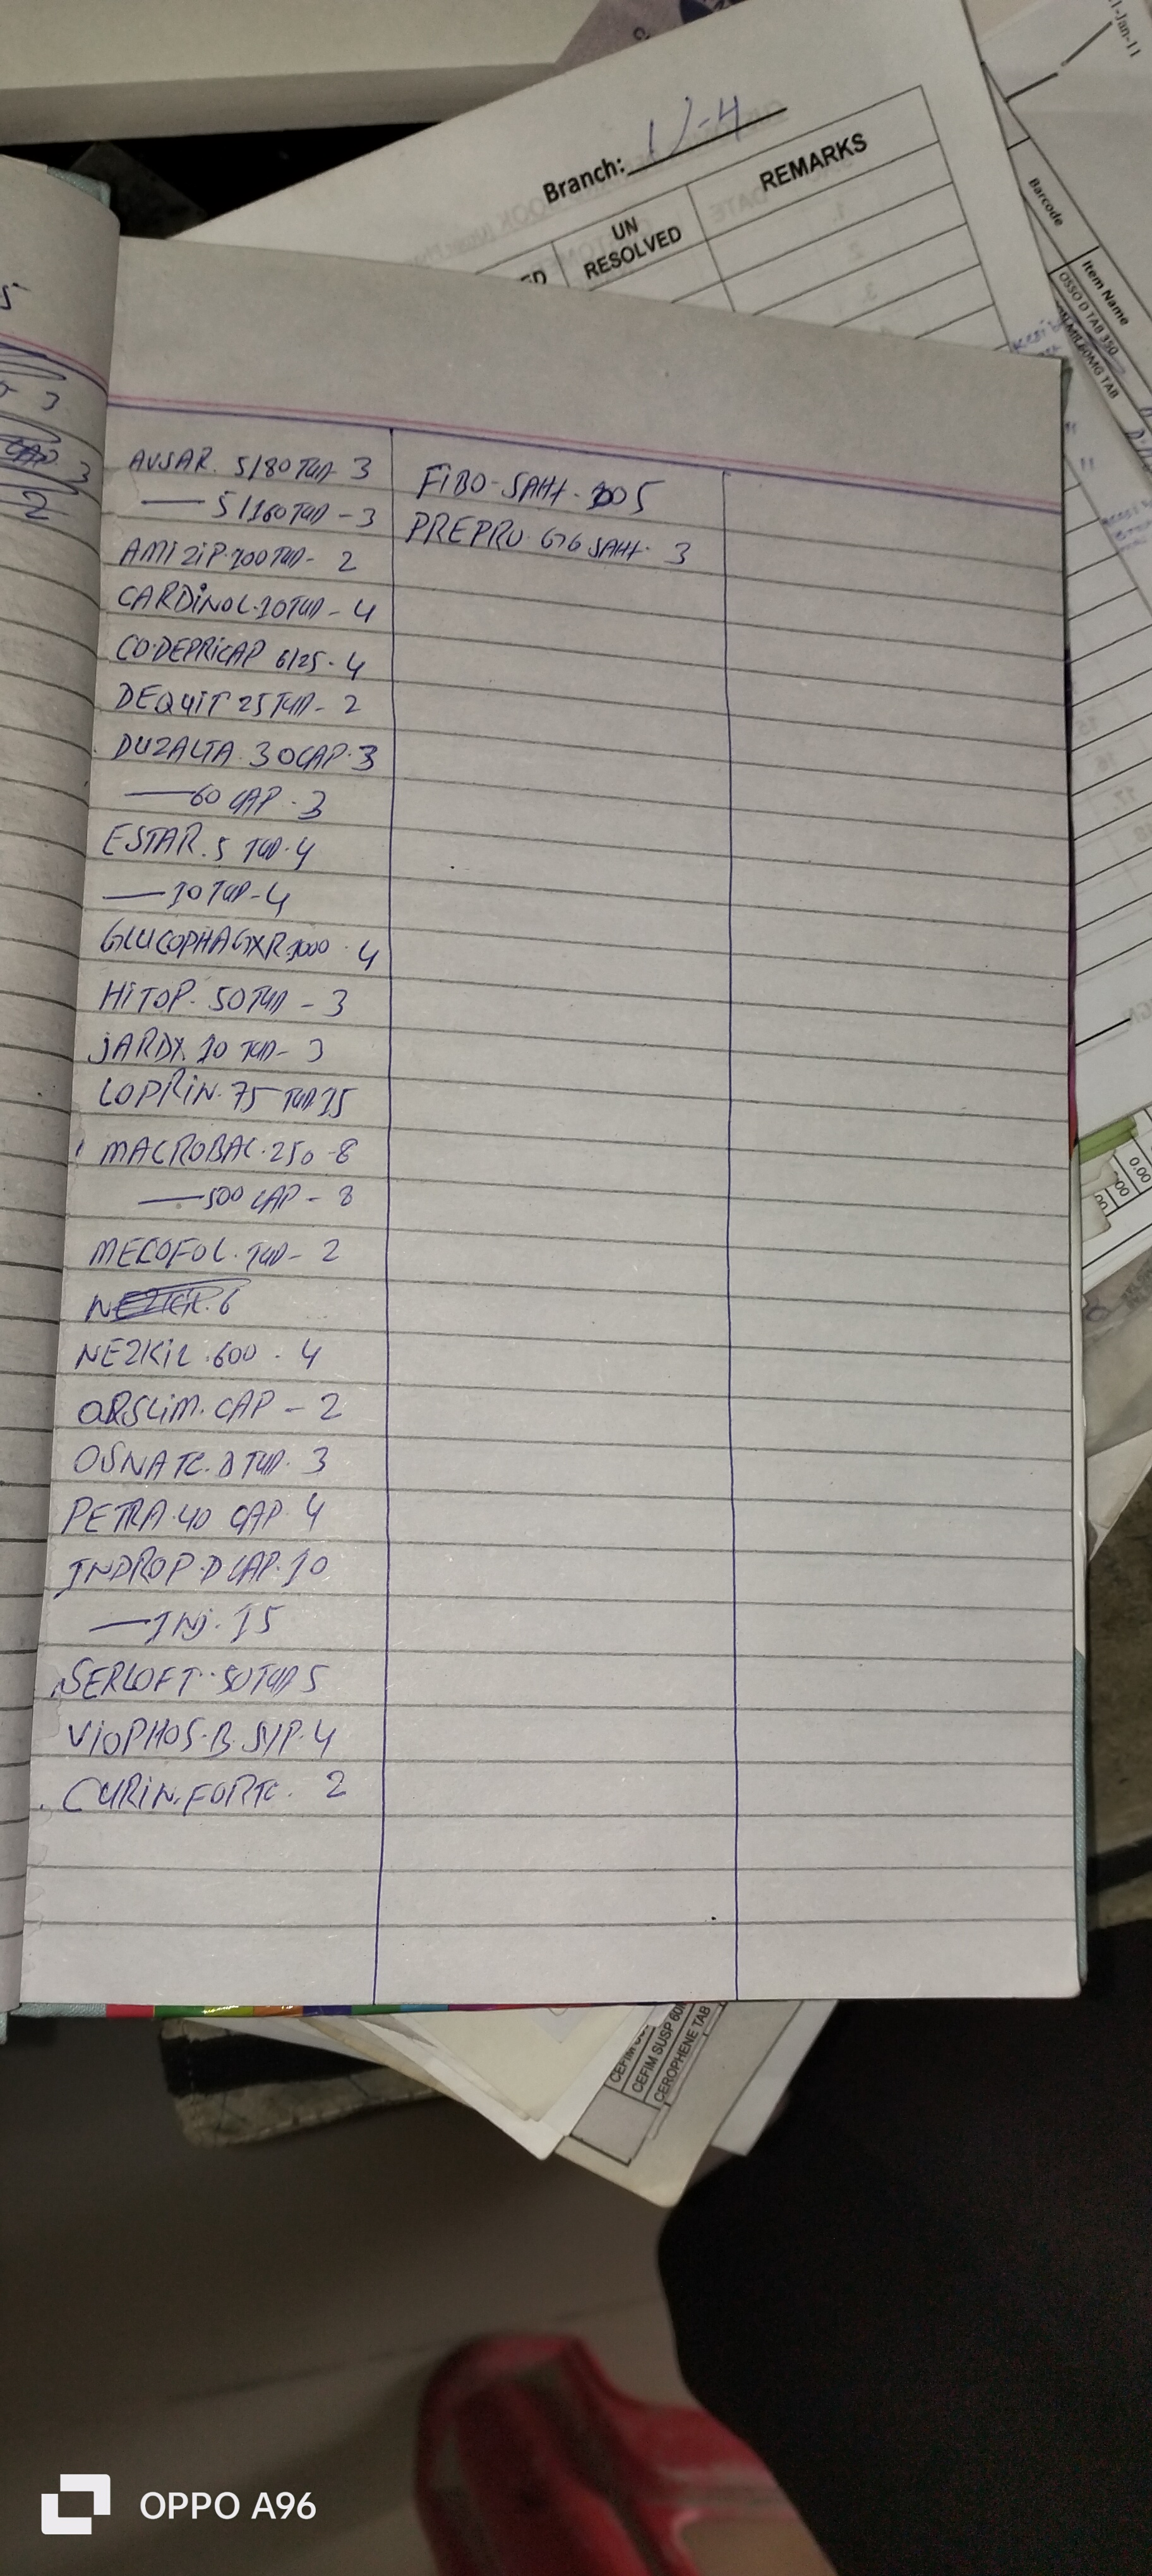 Branch: V-4
REMARKS
UN
RESOLVED
ED
1-Jan-11
Barcode
Item Name
OSSO D TAB 350
60MG TAB
AVSAR. 5/80 TAB 3
— 5/160 TAB - 3
AMIZIP. 100 TAB - 2
CARDINOL. 10 TAB - 4
CO.DEPRICAP 6/25 - 4
DEQUIT 25 TAB - 2
DUZALTA. 30 CAP. 3
— 60 CAP. 3
ESTAR. 5 TAB. 4
— 10 TAB - 4
GLUCOPHAG XR 1000. 4
HITOP. 50 TAB - 3
JARDX. 10 TAB - 3
LOPRIN. 75 TAB 15
MACROBAC. 250 - 8
— 500 CAP - 8
MECOFOL. TAB - 2
NEZKIL. 600. 4
ORSLIM. CAP - 2
OSNATE. D TAB. 3
PETRA. 40 CAP. 4
INDROP. D CAP. 10
— INJ. 15
SERLOFT. 50 TAB 5
VIOPHOS. B. SYP. 4
CURIN. FORTE. 2
FIBO - SAHH. 5
PREPRO. GG SAHH. 3
0.00
CEFIM SUSP 60
CEROPHENE TAB
OPPO A96